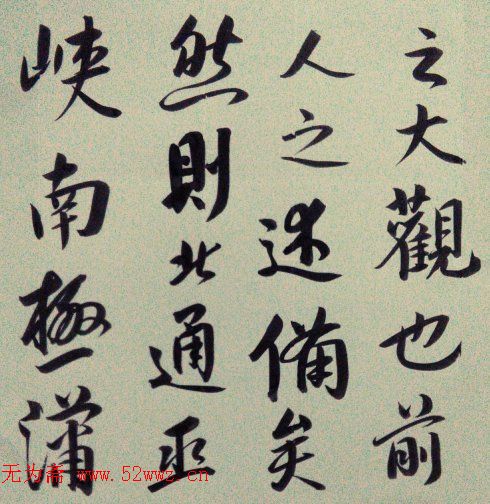 之大觀也前
人之述備矣
然則北通巫
峽南極瀟
无为斋 www.52wwz.cn